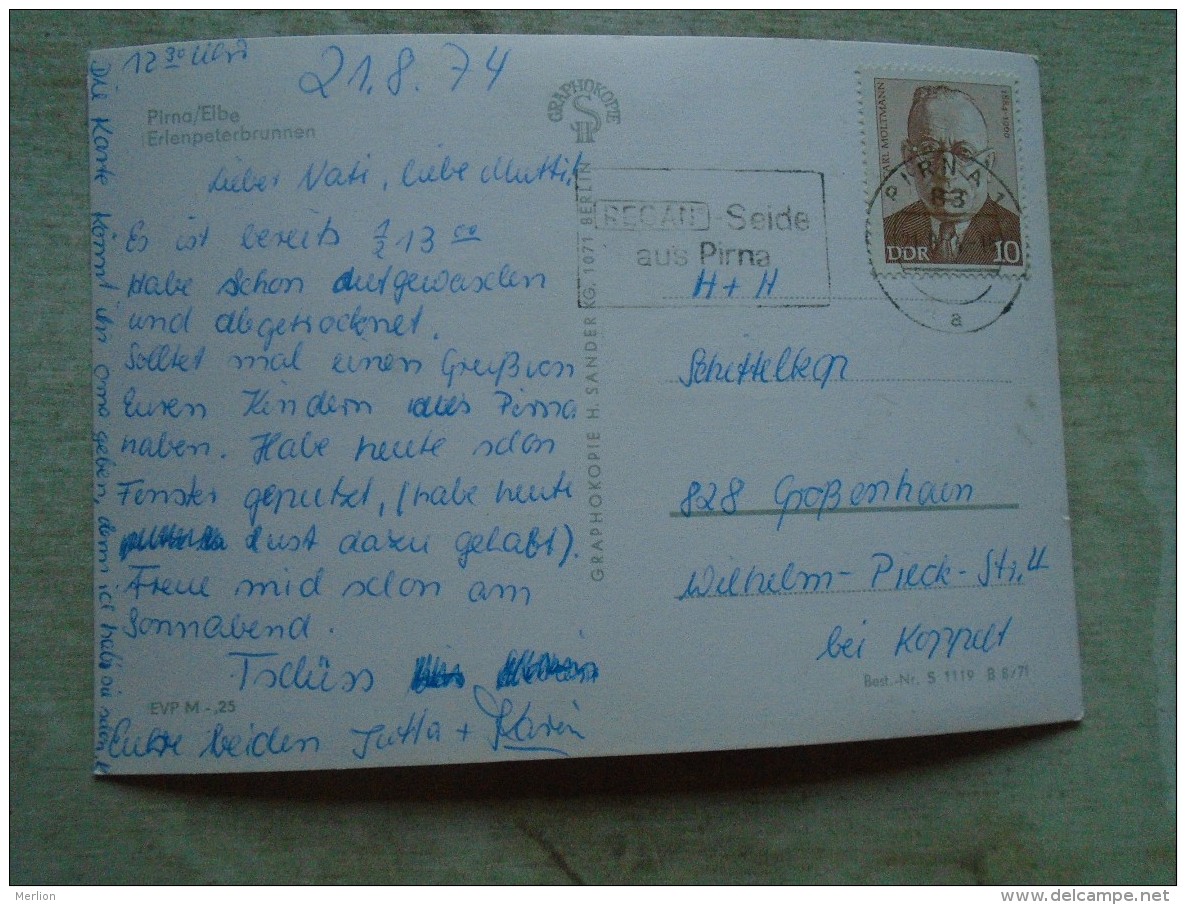 12 30 Uhr
21.8.74
Pirna/Elbe
Erlenpeterbrunnen
Lieber Vati, liebe Mutti!
Es ist bereits 1/2 13 00
Habe schon aufgewaschen
und abgetrocknet.
Solltet mal einen Gruß von
Euren Kindern aus Pirna
haben. Habe heute schon
Fenster geputzt, (habe heute
Lust dazu gehabt).
Freue mich schon am
Sonnabend.
Tschüss
EVP M -,25
Eure beiden Jutta + Karin
Die Karte könnt ihr Oma geben, denn ich habe sie
GRAPHOKOPIE
GRAPHOKOPIE H. SANDER KG. 1071 BERLIN
REGAN-Seide
aus Pirna
KARL MOLTMANN
1884-1960
DDR 10
PIRNA 1
83
a
H + H
828 Großenhain
Wilhelm-Pieck-Str. 4
bei Koppelt
Best.-Nr. S 1119 B 8/71
Merlion
delcampe.net